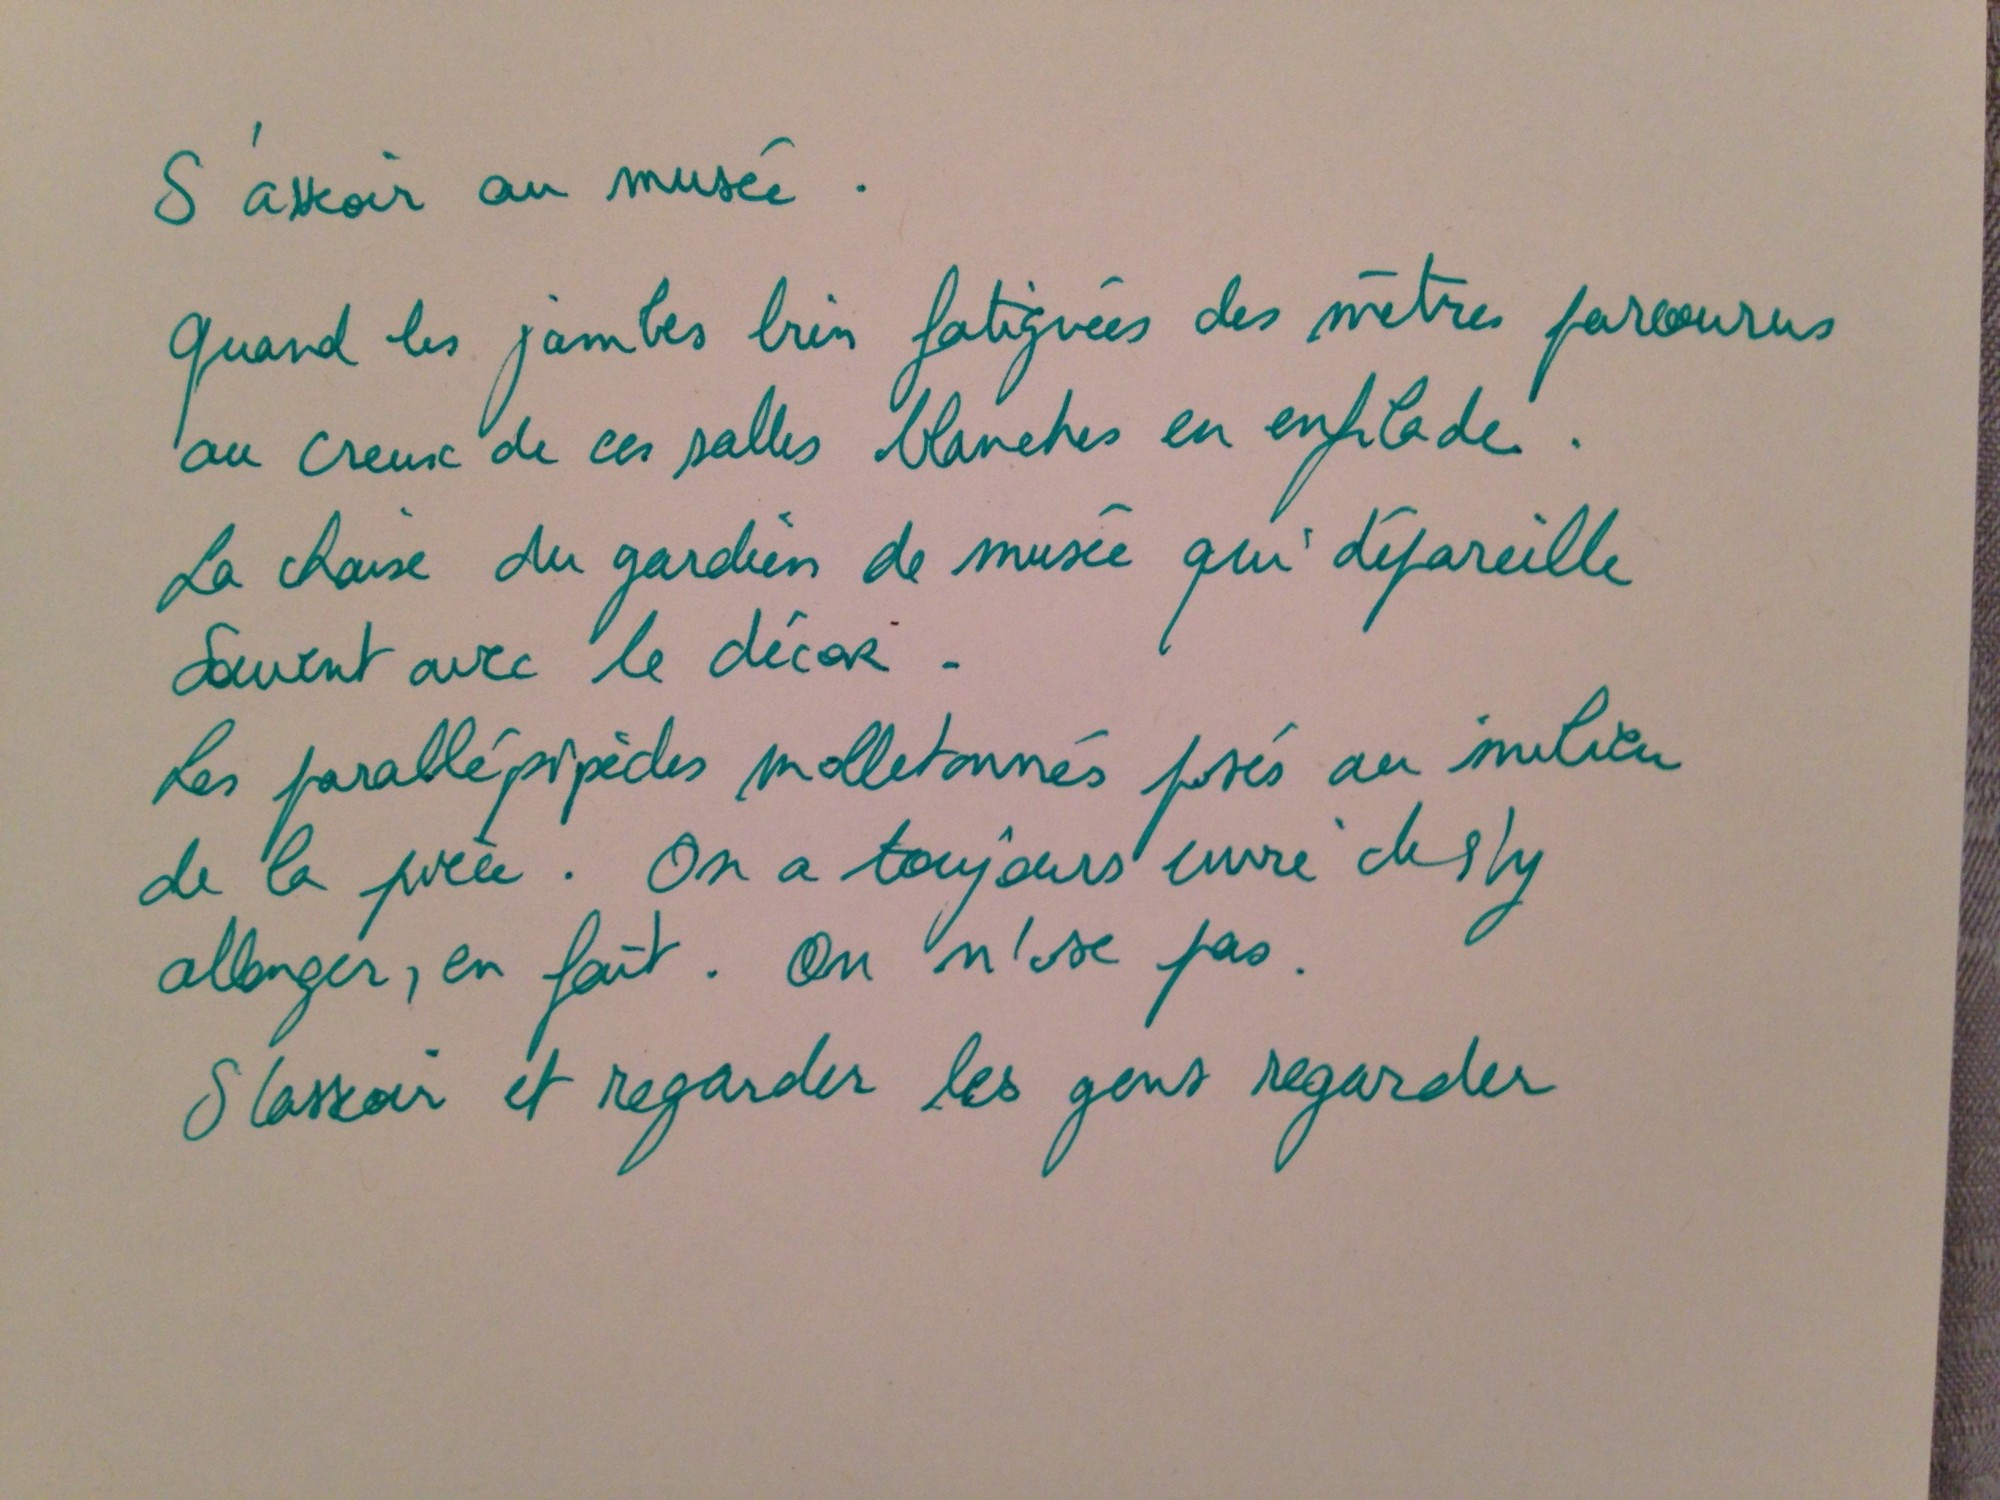 S'asseoir au musée.
Quand les jambes bien fatiguées des mètres parcourus
au creux de ces salles blanches en enfilade.
La chaise du gardien de musée qui dépareille
Souvent avec le décor.
Les parallépipèdes molletonnés posés au milieu
de la pièce. On a toujours envie de s'y
allonger, en fait. On n'ose pas.
S'asseoir et regarder les gens regarder